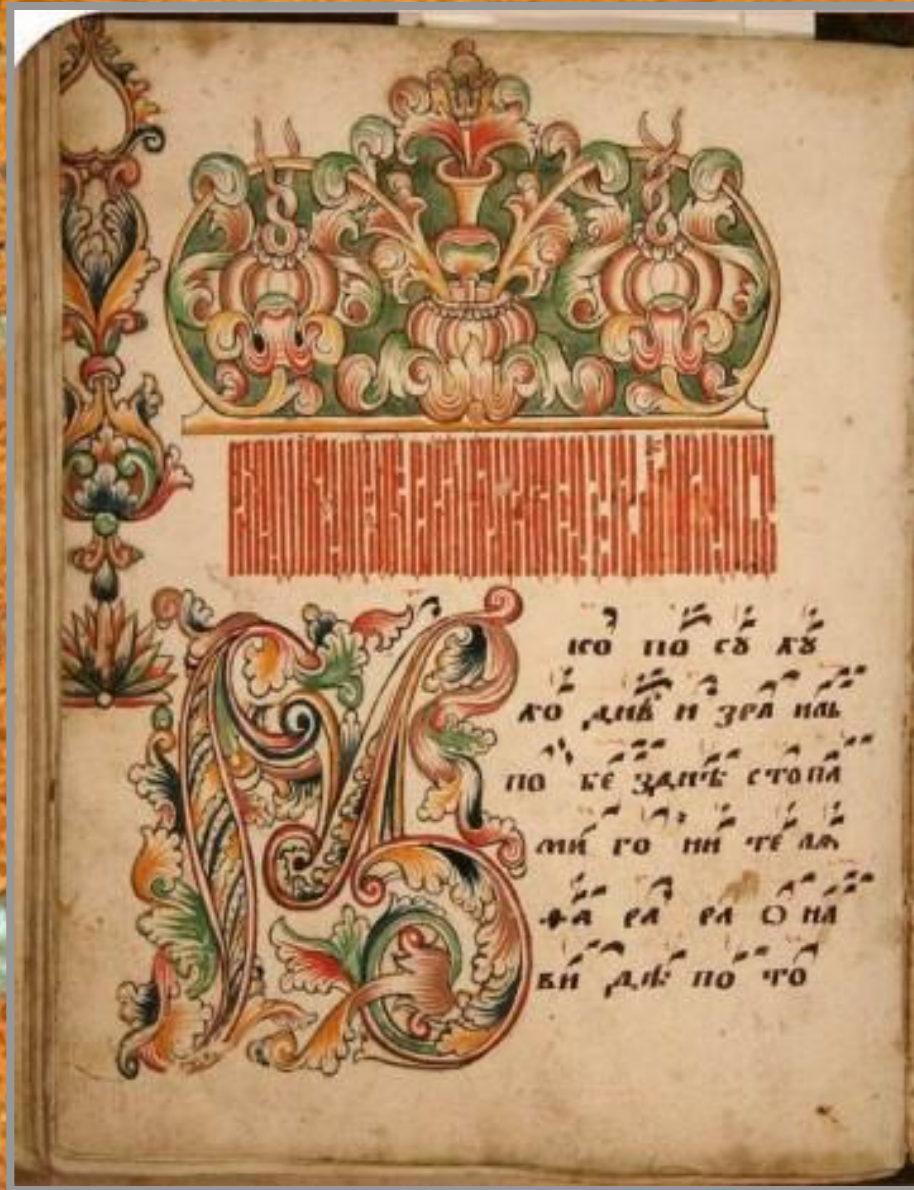 Ꙗ ко по сꙋ хꙋ
хо дивъ и зра иль
по бе зднѣ стопа
ми го ни те лѧ
фа ра ра о на
ви дѣ по то